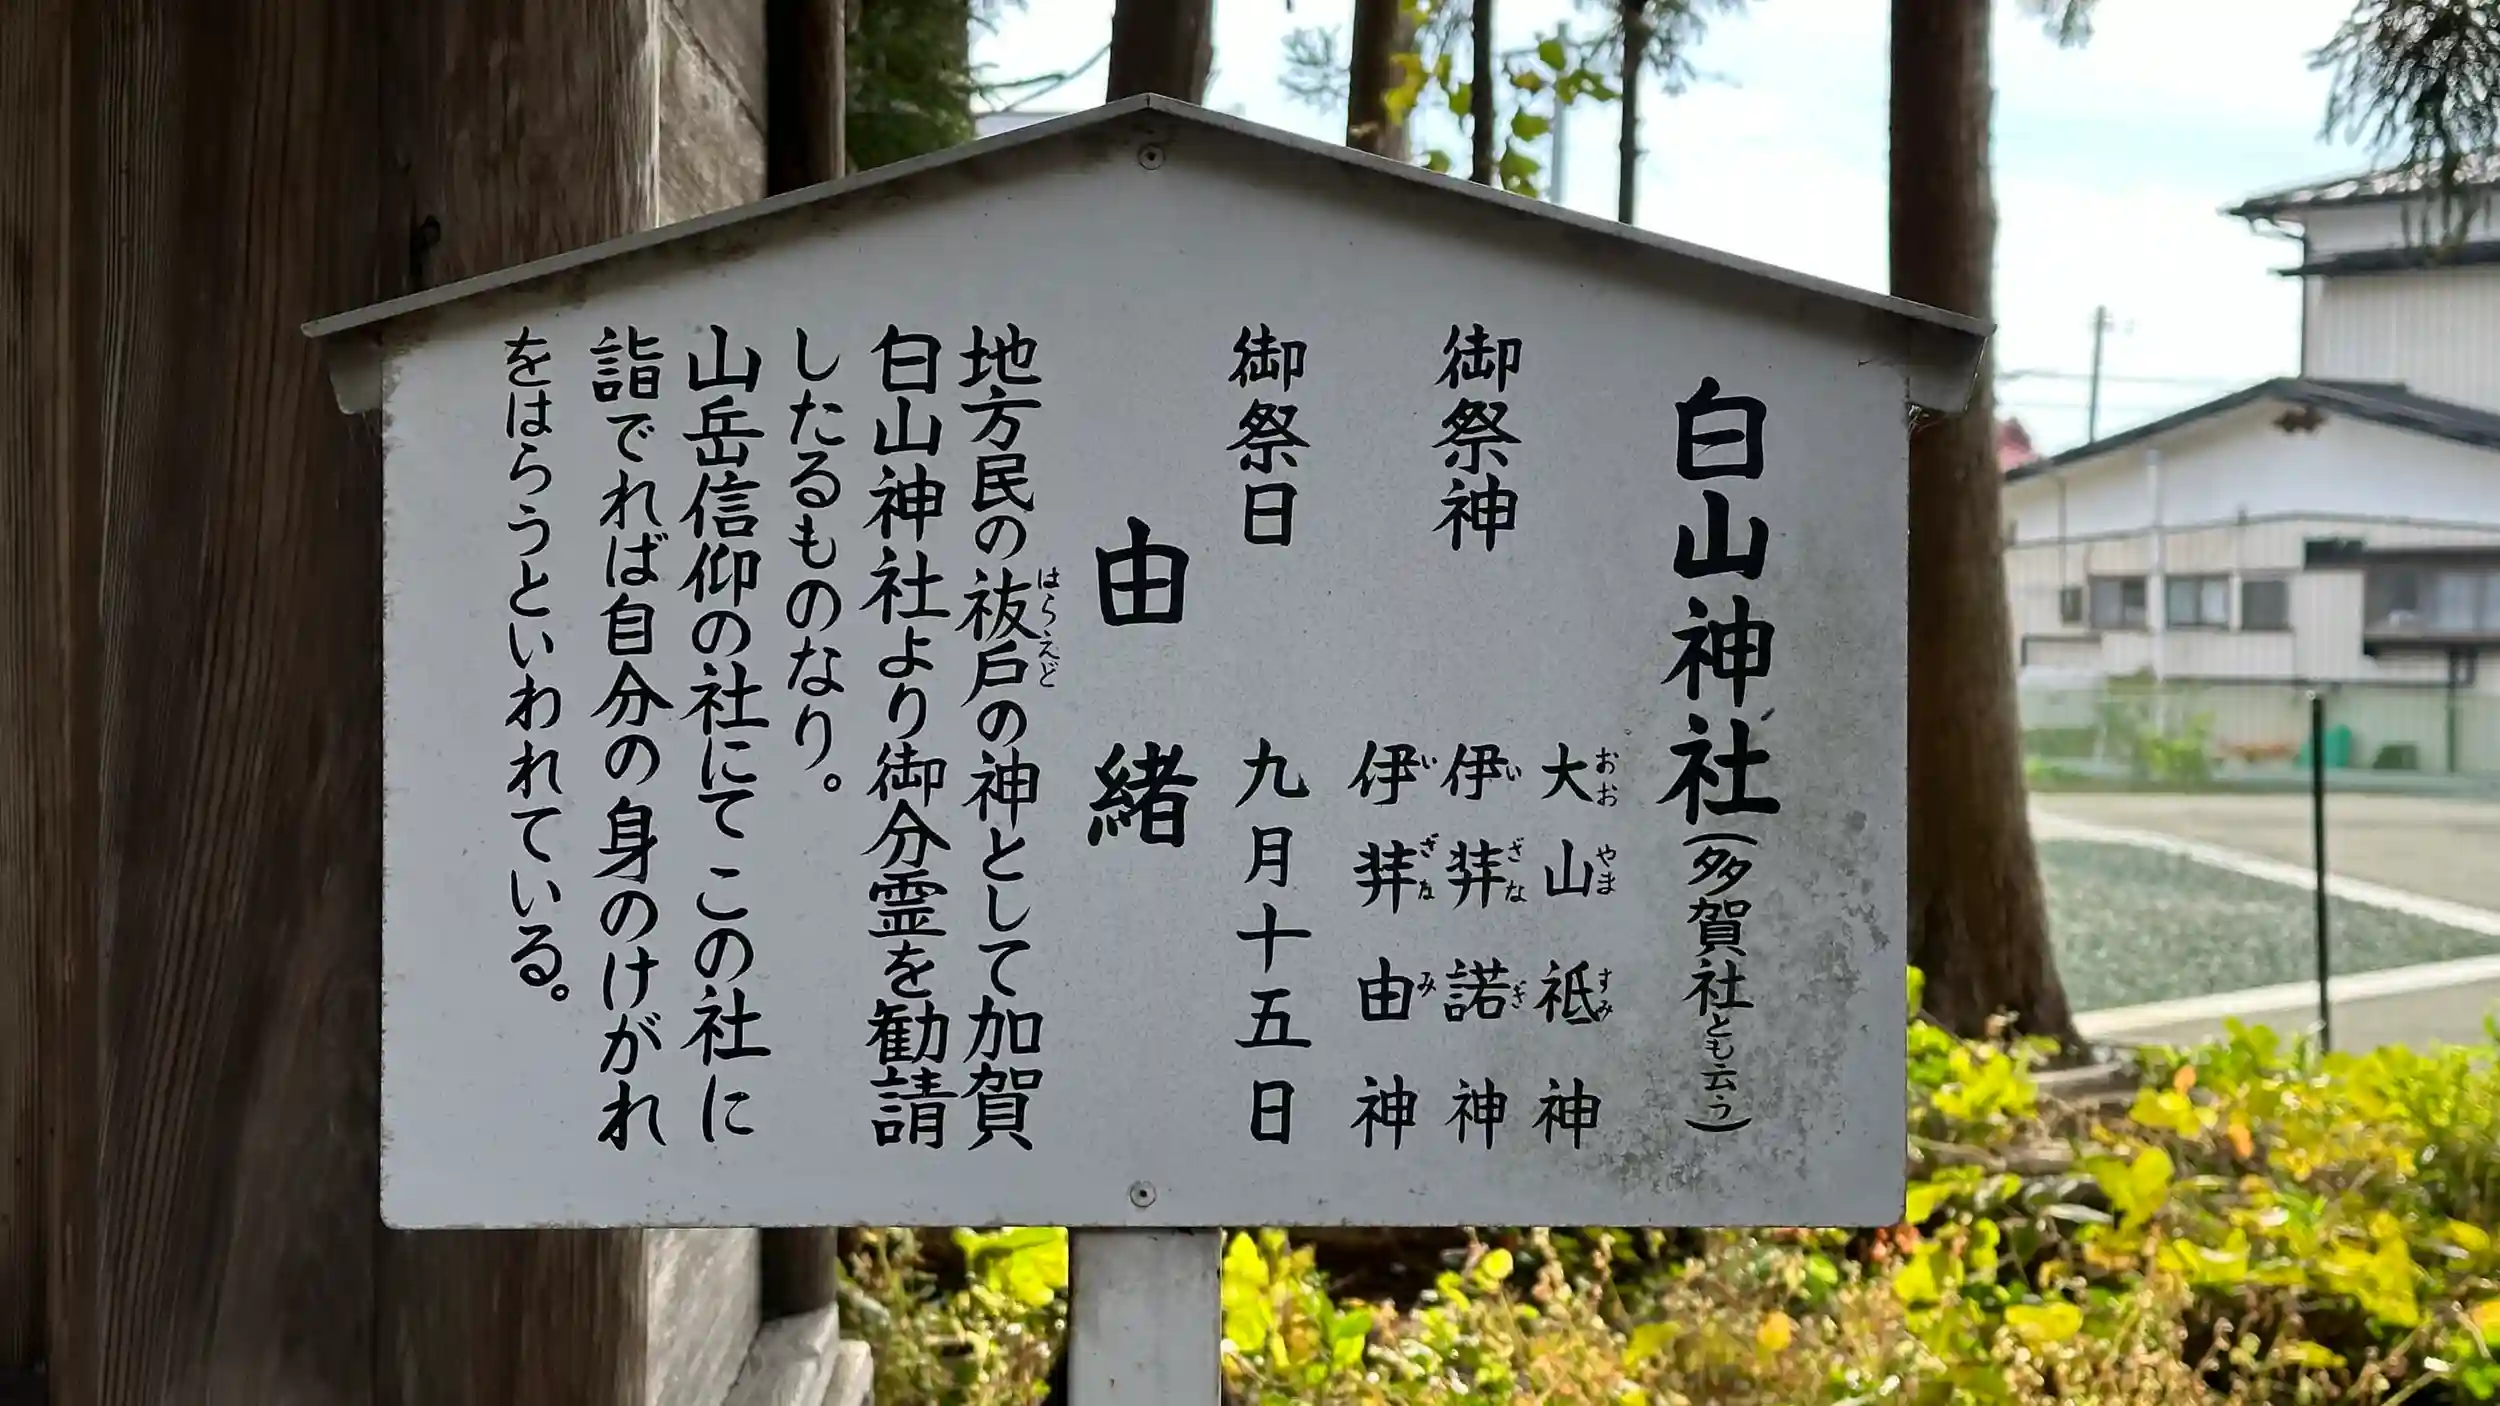 白山神社(多賀社とも云う)
御祭神
大山祇神
おおやますみ
伊弉諾神
いざなぎ
伊弉由神
いざなみ
御祭日
九月十五日
由緒
地方民の祓戸の神として加賀
はらえど
白山神社より御分霊を勧請
したるものなり。
山岳信仰の社にてこの社に
詣でれば自分の身のけがれ
をはらうといわれている。